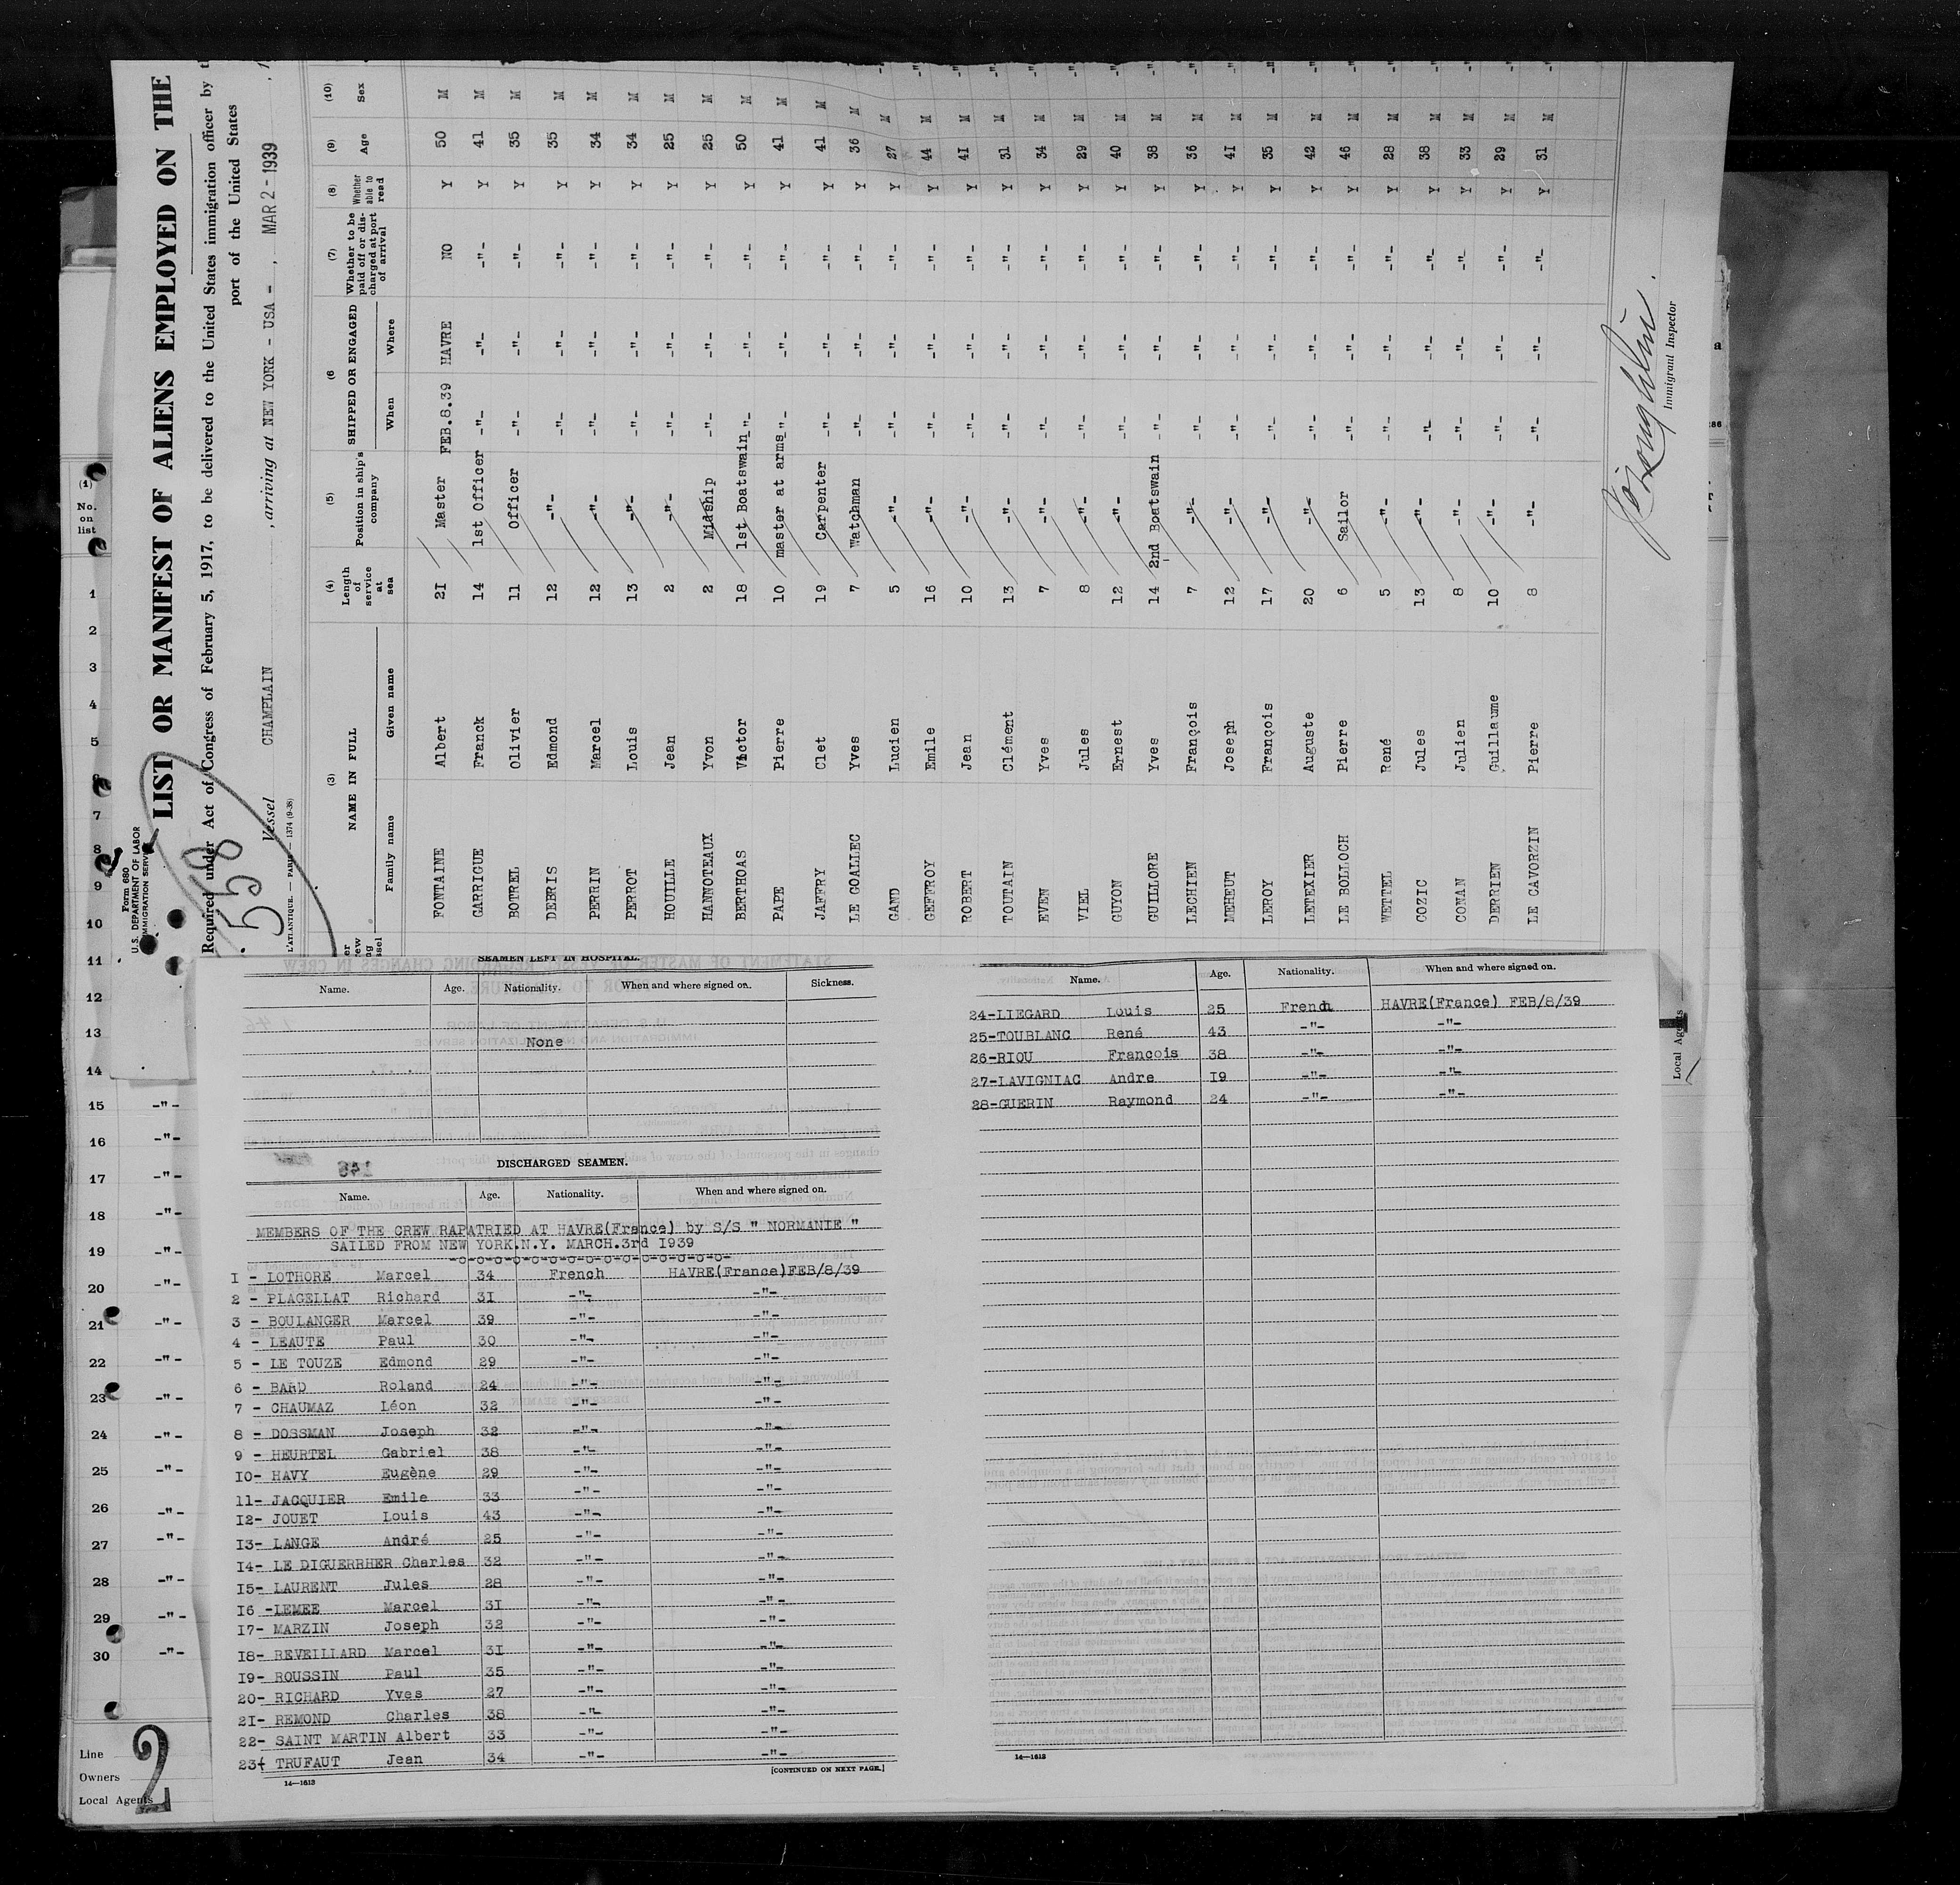 Form 680
U.S. DEPARTMENT OF LABOR
IMMIGRATION SERVICE
LIST OR MANIFEST OF ALIENS EMPLOYED ON THE
Required under Act of Congress of February 5, 1917, to be delivered to the United States immigration officer by
port of the United States
558
Vessel CHAMPLAIN , arriving at NEW YORK - USA - , MAR 2 - 1939
L'ATLANTIQUE. — PARIS — 1374 (9-38)
(3) NAME IN FULL (4) Length of service at sea (5) Position in ship's company (6 SHIPPED OR ENGAGED (7) Whether to be paid off or discharged at port of arrival (8) Whether able to read (9) Age (10) Sex
Family name Given name When Where
FONTAINE Albert 2I Master FEB.8.39 HAVRE NO Y 50 M
GARRIGUE Franck 14 1st Officer -"- -"- -"- Y 41 M
BOTREL Olivier 11 Officer -"- -"- -"- Y 35 M
DEBRIS Edmond 12 -"- -"- -"- -"- Y 35 M
PERRIN Marcel 12 -"- -"- -"- -"- Y 34 M
PERROT Louis 13 -"- -"- -"- -"- Y 34 M
HOUILLE Jean 2 -"- -"- -"- -"- Y 25 M
HANNOTEAUX Yvon 2 Midship -"- -"- -"- Y 25 M
BERTHOAS Victor 18 1st Boatswain -"- -"- -"- Y 50 M
PAPE Pierre 10 master at arms -"- -"- -"- Y 41 M
JAFFRY Clet 19 Carpenter -"- -"- -"- Y 41 M
LE GOALLEC Yves 7 Watchman -"- -"- -"- Y 36 M
GAND Lucien 5 -"- -"- -"- -"- Y 27 M
GEFFROY Emile 16 -"- -"- -"- -"- Y 44 M
ROBERT Jean 10 -"- -"- -"- -"- Y 4I M
TOUTAIN Clément 13 -"- -"- -"- -"- Y 31 M
EVEN Yves 7 -"- -"- -"- -"- Y 34 M
VIEL Jules 8 -"- -"- -"- -"- Y 29 M
GUYON Ernest 12 -"- -"- -"- -"- Y 40 M
GUILLORE Yves 14 2nd Boatswain -"- -"- -"- Y 38 M
LECHIEN François 7 -"- -"- -"- -"- Y 36 M
MEHEUT Joseph 12 -"- -"- -"- -"- Y 4I M
LEROY François 17 -"- -"- -"- -"- Y 35 M
LETEXIER Auguste 20 -"- -"- -"- -"- Y 42 M
LE BOLLOCH Pierre 6 Sailor -"- -"- -"- Y 46 M
WETTEL René 5 -"- -"- -"- -"- Y 28 M
COZIC Jules 13 -"- -"- -"- -"- Y 38 M
CONAN Julien 8 -"- -"- -"- -"- Y 33 M
DERRIEN Guillaume 10 -"- -"- -"- -"- Y 29 M
LE CAVORZIN Pierre 8 -"- -"- -"- -"- Y 31 M
Immigrant Inspector
(1)
No. on list
1
2
3
4
5
6
7
8
9
10
11
12
13
14
15 -"-
16 -"-
17 -"-
18 -"-
19 -"-
20 -"-
21 -"-
22 -"-
23 -"-
24 -"-
25 -"-
26 -"-
27 -"-
28 -"-
29 -"-
30 -"-
Line
Owners
Local Agents
2
SEAMEN LEFT IN HOSPITAL.
Name. Age. Nationality. When and where signed on. Sickness.
None
DISCHARGED SEAMEN.
Name. Age. Nationality. When and where signed on.
MEMBERS OF THE CREW RAPATRIED AT HAVRE(France) by S/S " NORMANIE "
SAILED FROM NEW YORK.N.Y. MARCH.3rd I939
-o-o-o-o-o-o-o-o-o-o-o-o-o-o-o-
I - LOTHORE Marcel 34 French HAVRE(France)FEB/8/39
2 - PLAGELLAT Richard 3I -"- -"-
3 - BOULANGER Marcel 39 -"- -"-
4 - LEAUTE Paul 30 -"- -"-
5 - LE TOUZE Edmond 29 -"- -"-
6 - BARD Roland 24 -"- -"-
7 - CHAUMAZ Léon 32 -"- -"-
8 - DOSSMAN Joseph 32 -"- -"-
9 - HEURTEL Gabriel 38 -"- -"-
I0- HAVY Eugène 29 -"- -"-
11- JACQUIER Emile 33 -"- -"-
I2- JOUET Louis 43 -"- -"-
I3- LANGE André 25 -"- -"-
I4- LE DIGUERRHER Charles 32 -"- -"-
I5- LAURENT Jules 28 -"- -"-
I6 -LEMEE Marcel 3I -"- -"-
I7- MARZIN Joseph 32 -"- -"-
I8- REVEILLARD Marcel 3I -"- -"-
I9- ROUSSIN Paul 35 -"- -"-
20- RICHARD Yves 27 -"- -"-
2I- REMOND Charles 38 -"- -"-
22- SAINT MARTIN Albert 33 -"- -"-
23- TRUFAUT Jean 34 -"- -"-
14—1613 [CONTINUED ON NEXT PAGE.]
Name. Age. Nationality. When and where signed on.
24-LIEGARD Louis 25 French HAVRE(France) FEB/8/39
25-TOUBLANC René 43 -"- -"-
26-RIOU Francois 38 -"- -"-
27-LAVIGNIAC Andre I9 -"- -"-
28-GUERIN Raymond 24 -"- -"-
14—1613
Local Agents